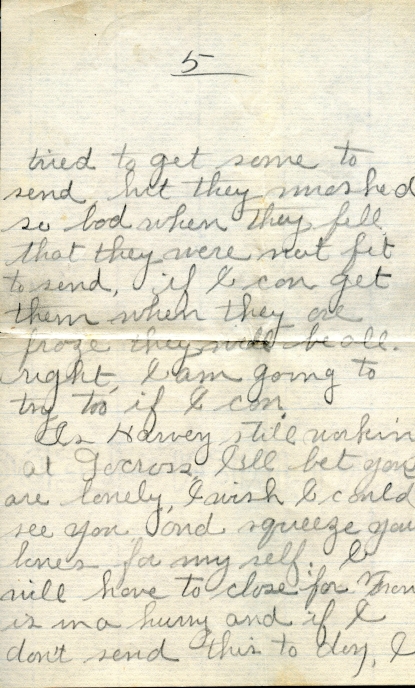 5
tried to get some to
send but they mashed
so bad when they fell
that they were not fit
to send, if I can get
them when they are
froze they will be all.
right, I am going to
try too if I can.
Is Harvey still workin
at I'll bet you
are lonely, I wish I could
see you and squeeze you
for my self. I
will have to close for
is in a hurry and if I
don't send this to day, I